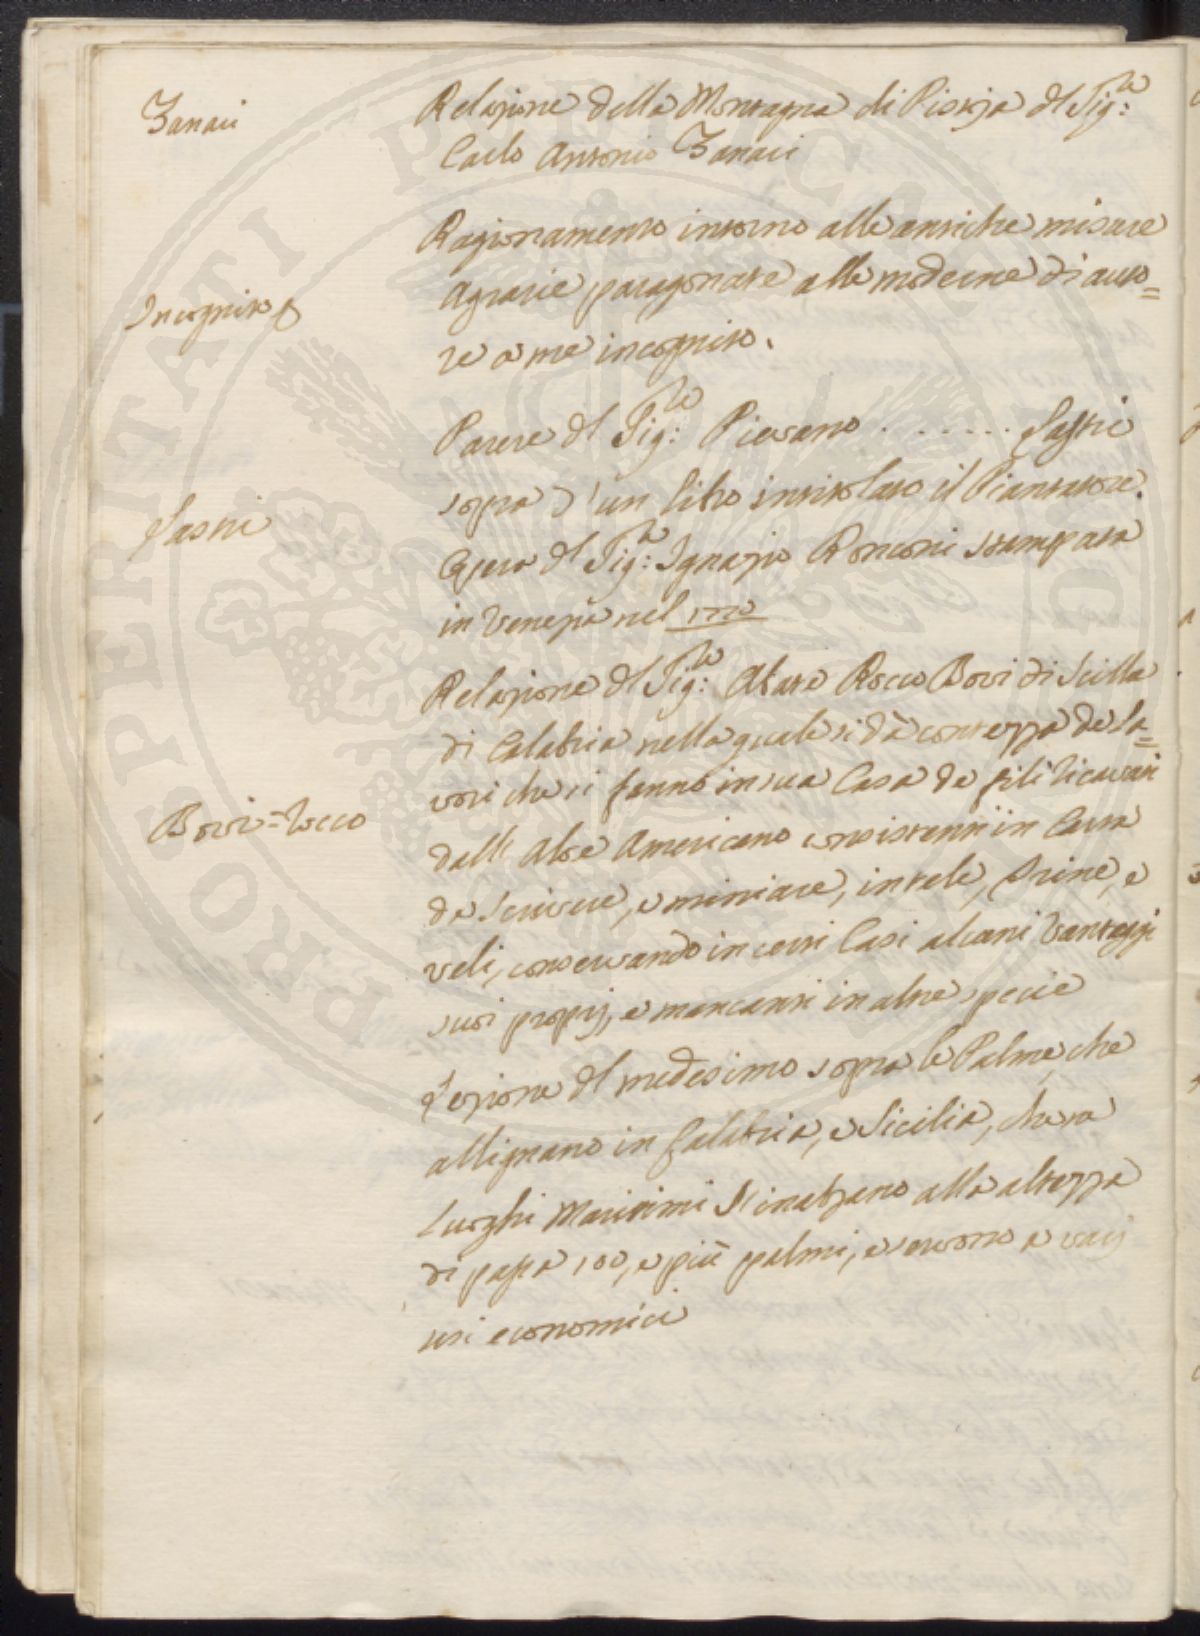 Zanaii
Relazione della Montagna di Pistoja dl Sig:re
Carlo Antonio Zanaii
Incognito
Ragionamento intorno alle antiche misure
Agrarie paragonate alle moderne di auto=
re a me incognito.
Lastri
Parere dl Sig:re Pievano . . . . . . Lastri
sopra d'un libro intitolato il Piantatore.
Opera dl Sig:re Ignazio Ronconi stampata
in Venezia nel 1770
Bovi = Rocco
Relazione dl Sig:re Abate Rocco Bovi di Scilla
di Calabria nella quale si dà contezza de la=
vori che si fanno in sua Casa de fili ricavati
dall' Aloe Americano consistenti in Carta
da scrivere, e miniare, in tele, trine, e
veli, conservando in certi Casi alcuni Vantaggi
suoi proprj, e mancanti in altre specie
Lezione dl medesimo sopra le Palme, che
allignano in Calabria, e Sicilia, che ra
Luoghi Marittimi s'inalzano alla altezza
di passa 100, e più palmi, e servono a varj
usi economici
PROSPERITATI PUBLICAE AUGENDAE